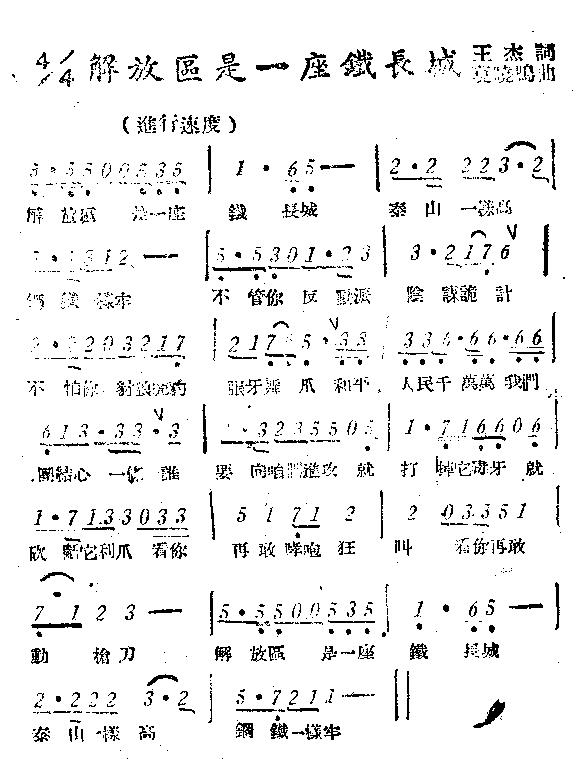 4/4 解放區是一座鐵長城 王杰詞
曉鳴曲
(進行速度)
5·5 5 0 0 5 3 5 | 1 · 6 5 — | 2·2 2 2 3·2 |
解 放區 是一座 鐵 長城 泰 山 一樣高
1 2 — — | 5·5 3 0 1·2 3 | 3·2 1 7 6 V |
鐵一樣牢 不 管你 反 動派 陰 謀詭計
2·2 2 0 3 2 1 7 | 2 1 7 6 5·V 3 3 | 3 3 6·6 6·6 6 |
不 怕你 豺狼虎豹 張牙舞 爪 和平 人民千萬萬 我們
6 1 3·3 3·V 3 | 1·3 2 3 5 5 0 5 | 1·7 1 6 6 0 6 |
團結心 一條 誰 要 向咱們進攻 就 打 掉它毒牙 就
1·7 1 3 3 0 3 3 | 5 1 7 1 2 | 2 0 3 3 5 1 |
砍 斷它利爪 看你 再敢哮咆 狂 叫 看你再敢
7 1 2 3 — | 5·5 5 0 0 5 3 5 | 1 · 6 5 — |
動 槍刀 解 放區 是一座 鐵 長城
2·2 2 2 3·2 | 5·7 2 1 1 — ||
泰 山一樣 高 鋼 鐵一樣牢